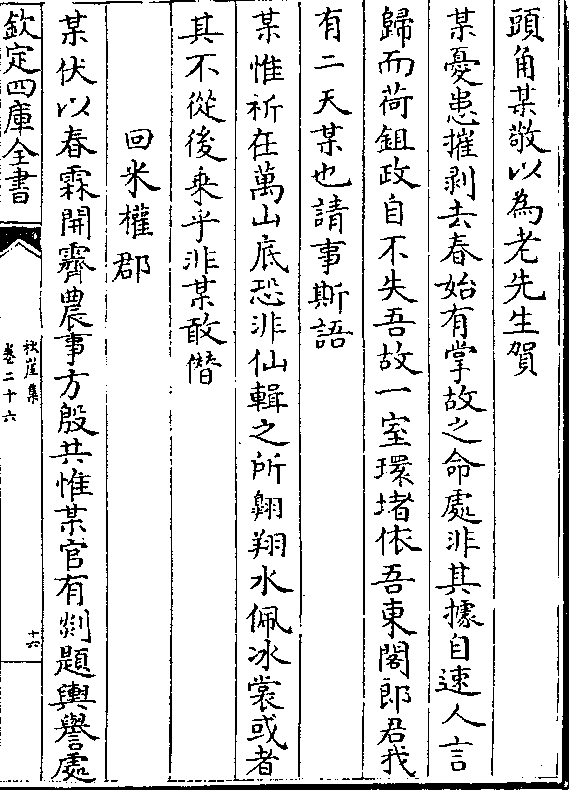 頭角某敬以為老先生賀
某憂患摧剥去春始有掌故之命處非其據自速人言
歸而荷鉏政自不失吾故一室環堵依吾東閣郎君我
有二天某也請事斯語
某惟祈在萬山底恐非仙輯之所翺翔水佩冰裳或者
其不從後乗乎非某敢僭
回米權郡
某伏以春霖開霽農事方殷共惟某官有剡題輿譽處
欽定四庫全書
秋崖集
卷二十六
十六